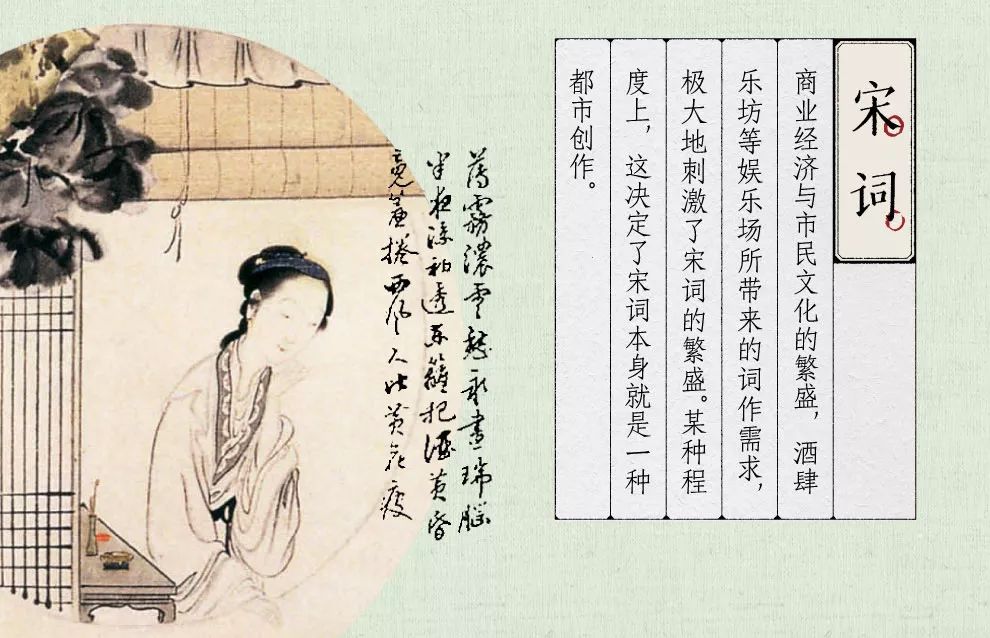 宋词
商业经济与市民文化的繁盛，酒肆
乐坊等娱乐场所带来的词作需求，
极大地刺激了宋词的繁盛。某种程
度上，这决定了宋词本身就是一种
都市创作。
薄霧濃雲愁永晝瑞腦
半夜涼初透東籬把酒黃昏
簾捲西風人比黃花瘦